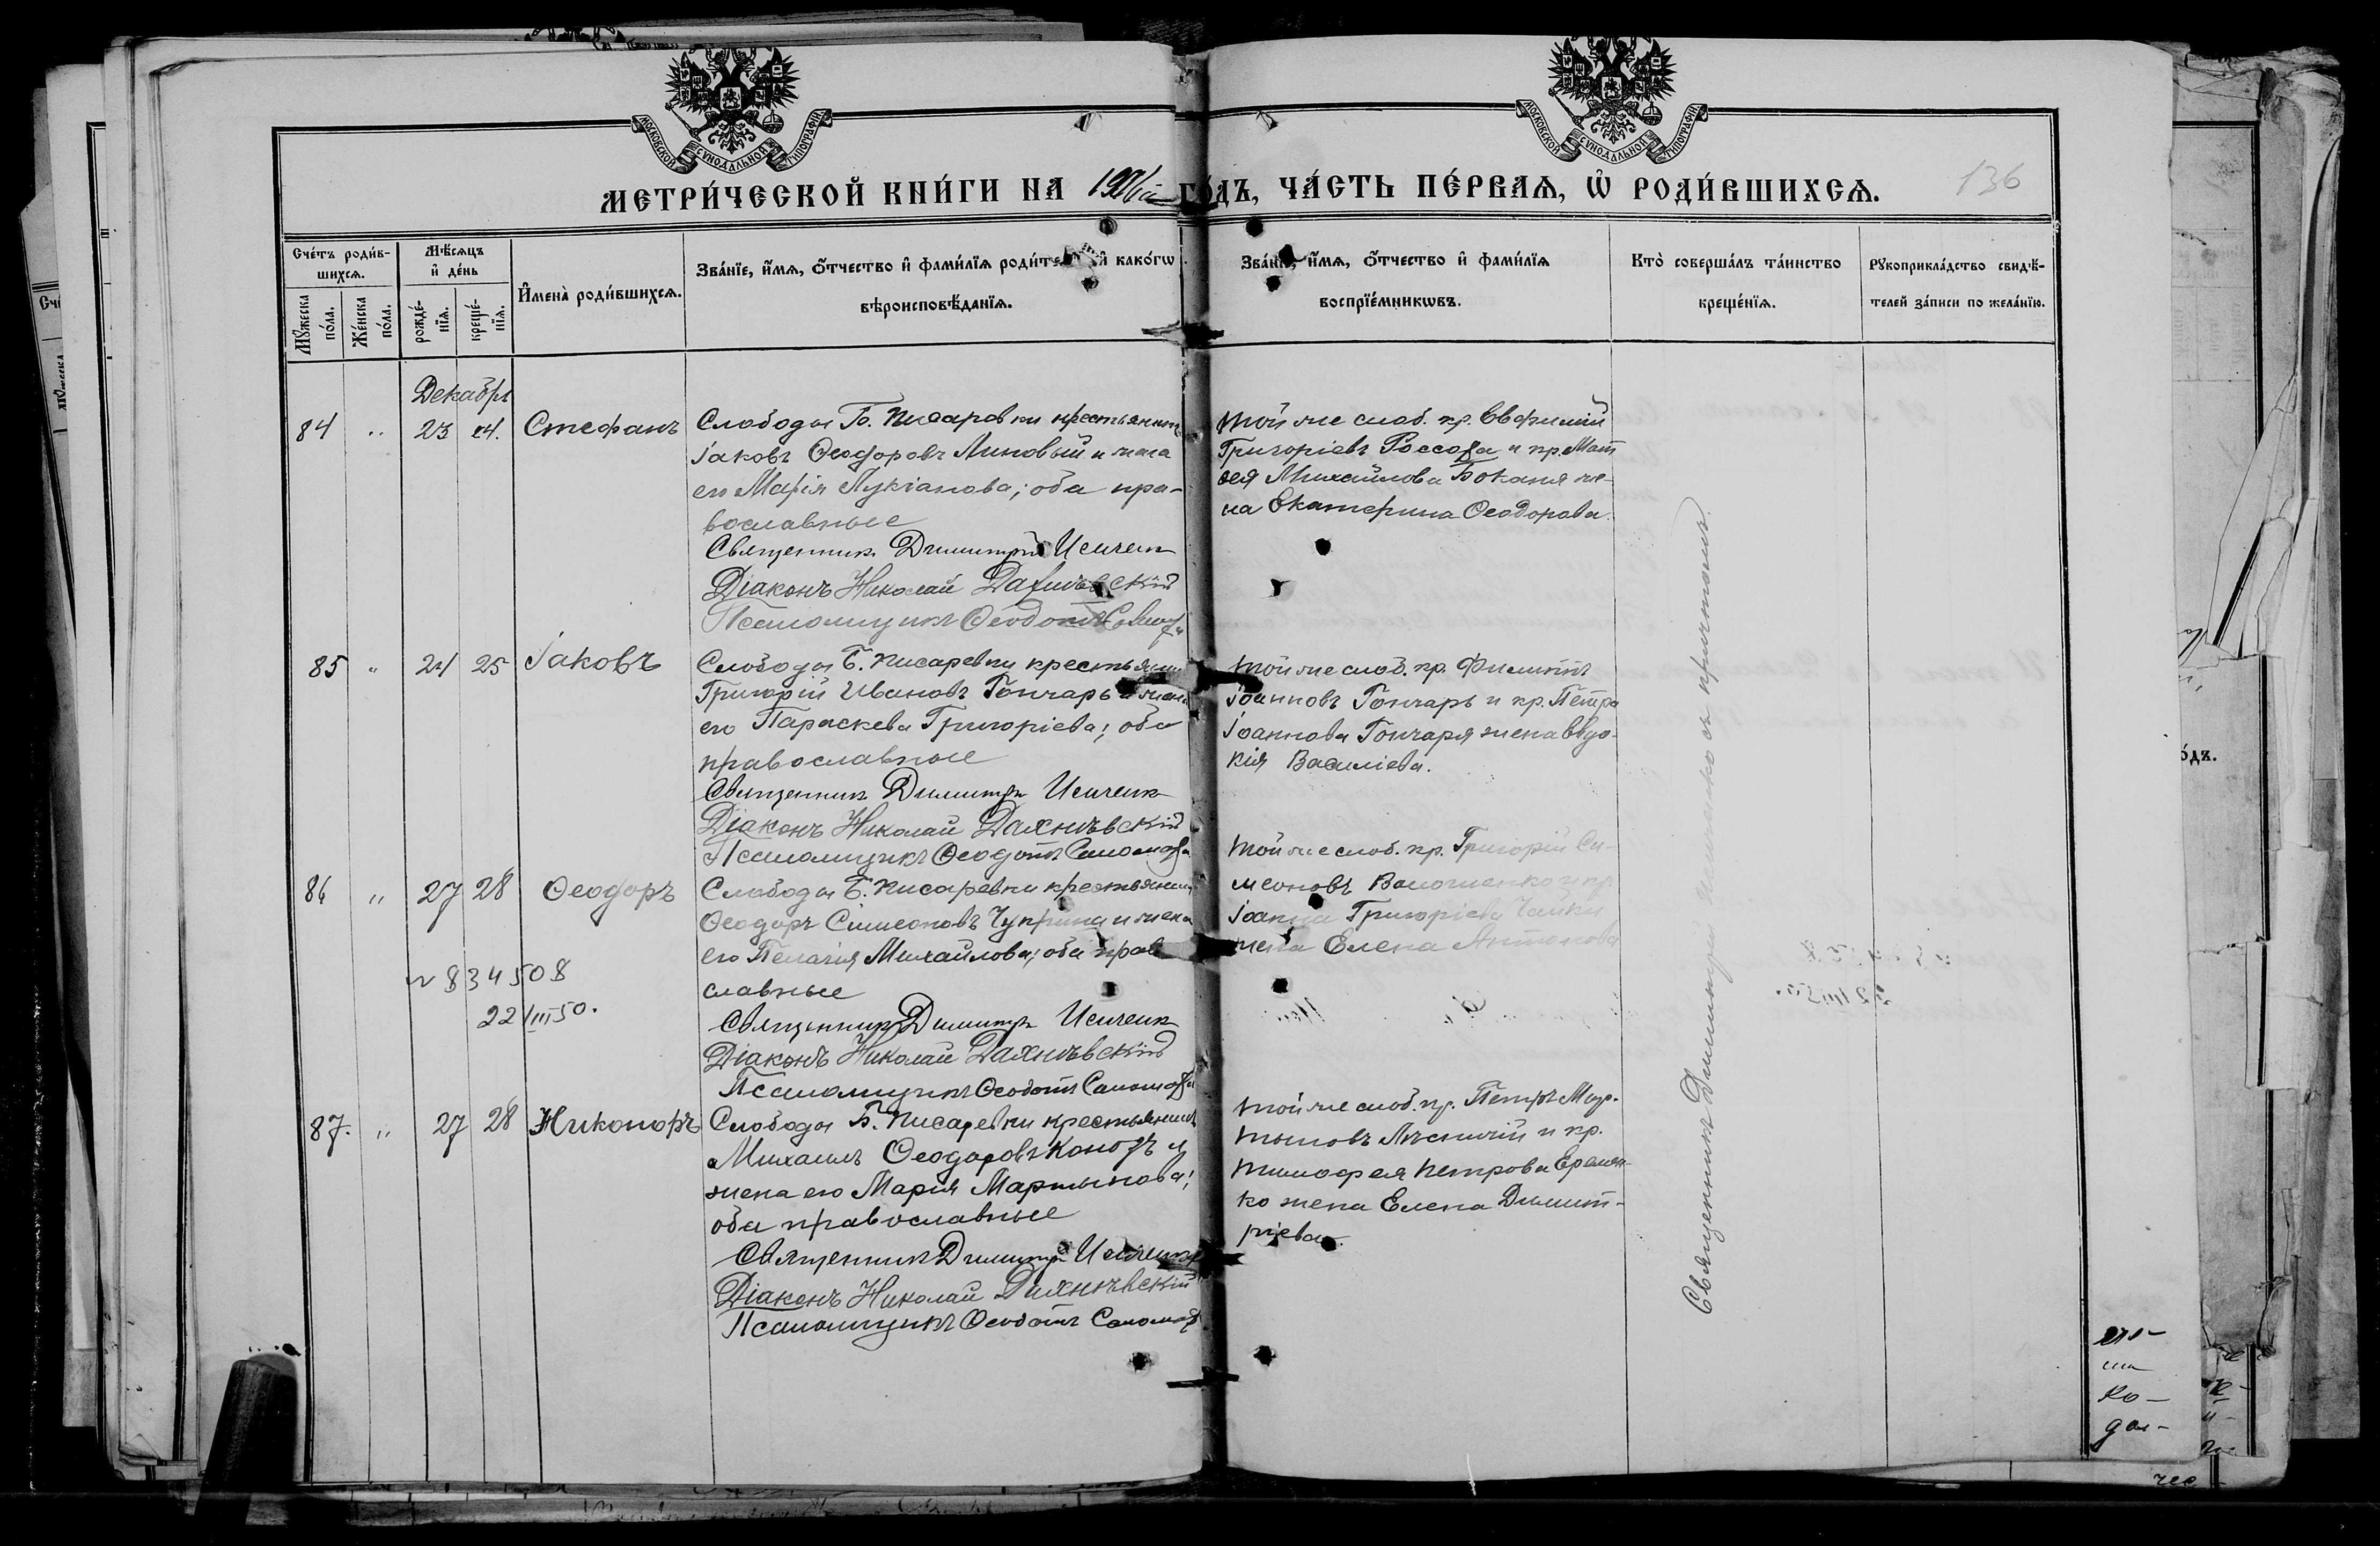 МОСКОВСКОЙ СѴНОДАЛЬНОЙ ТИПОГРАФІИ
МОСКОВСКОЙ СѴНОДАЛЬНОЙ ТИПОГРАФІИ
МЕТРИ́ЧЕСКОЙ КНИ́ГИ НА
ГО́ДЪ, ЧА́СТЬ ПЕ́РВАѦ, Ѡ҆ РОДИ́ВШИХСѦ.
136
Сче́тъ роди́в-
шихсѧ.
Мꙋ́жеска по́ла.
Же́нска по́ла.
Мѣ́сѧцъ
и҆ де́нь
рожде́-
нїѧ.
креще́-
нїѧ.
И҆мена̀ роди́вшихсѧ.
Зва́нїе, и҆́мѧ, ѻ҆́тчество и҆ фами́лїѧ и҆ како́гѡ
вѣроисповѣ́данїѧ.
Зва́нїе, и҆́мѧ, ѻ҆́тчество и҆ фами́лїѧ
воспрїе́мникѡвъ.
Кто̀ соверша́лъ та́инство
креще́нїѧ.
Рꙋкоприкла́дство свидѣ́-
телей за́писи по жела́нїю.
Декабрь
84 " 23 24. Стефанъ
Слободы Б. Писаревки крестьянинъ
Іаковъ Ѳеодоровъ Линовый и жена
его Марія Лукіанова; оба пра-
вославные
Священник Димитрій Исиченко
Діаконъ Николай Дахнѣвскій
Псаломщикъ Ѳеодотъ
Той же слоб. кр. Евфимій
Григоріевъ Россоха и кр. Мат
ѳея Михайлова Боканя же-
на Екатерина Ѳеодорова.
85 " 24 25 Іаковъ
Слободы Б. Писаревки крестьянин
Григорій Ивановъ Гончаръ и жена
его Параскева Григоріева; оба
православные
Священник Димитрій Исиченко
Діаконъ Николай Дахнѣвскій
Псаломщикъ Ѳеодотъ
Той же слоб. кр. Филиппъ
Іоанновъ Гончаръ и кр. Петра
Іоаннова Гончаря жена Евдо-
кія Василіева.
86 " 27 28 Ѳеодоръ
Слободы Б. Писаревки крестьянин
Ѳеодоръ Симеоновъ Чуприна и жена
его Пелагія Михайлова; оба право
славные
Священник Димитрій Исиченко
Діаконъ Николай Дахнѣвскій
Псаломщикъ Ѳеодотъ
Той же слоб. кр. Григорій Си-
меоновъ и кр
Іоанна Григоріева Чайки
жена Елена Антонова
№ 834508
22/III 50.
87. " 27 28 Никаноръ
Слободы Б. Писаревки крестьянинъ
Михаилъ Ѳеодоровъ и
жена его Марія Мартынова;
оба православные
Священник Димитрій Исиченко
Діаконъ Николай Дахнѣвскій
Псаломщикъ Ѳеодотъ
Той же слоб. кр. Петръ Мар-
тыновъ и кр.
Тимофея Петрова Еремен-
ко жена Елена Димит-
ріева.
Священникъ Димитрій Исиченко съ причтомъ.